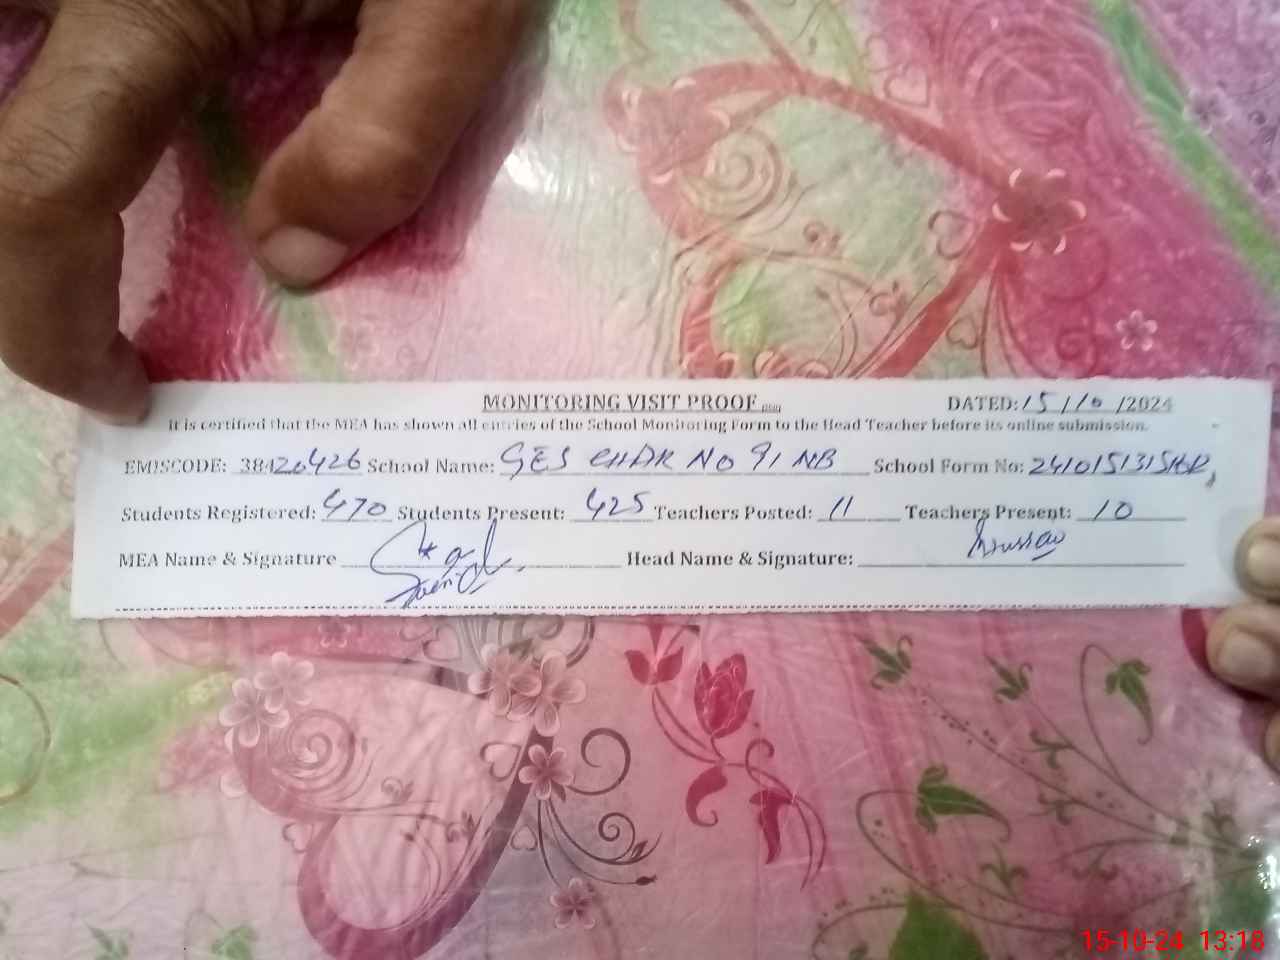 MONITORING VISIT PROOF DATED: 15/10/2024
It is certified that the MEA has shown all entries of the School Monitoring Form to the Head Teacher before its online submission.
EMISCODE: 38420426 School Name: GES CHAK NO 91 NB School Form No:
Students Registered: 470 Students Present: 425 Teachers Posted: 11 Teachers Present: 10
MEA Name & Signature Head Name & Signature:
15-10-24 13:18